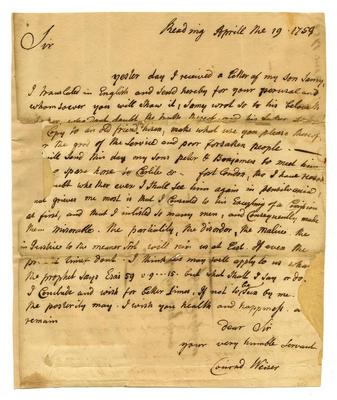 Reading Aprill the 19 1754
Sir
yester day I received a letter of my son Samy,
I translated in English and Send hereby for your perusal and
whomsoever you will Shaw it, Samy wrot so to his
doubt the truth thereof and his
Copy to an old friend make use you please thereof
for the good of the Service and poor forsaken people
will Send this day my sons peter & Benjamin to meet him
a spare horse to fort I have
doubt whether ever I Shall See him again in pensilvania
grieves me most is that I Consented to his Excepting of a
at first, and that I inlisted so maney men, and Consequently make
them miserable. The partiality, the disorder, the Malice the
in Justice to the meaner Sort will ruin us at last. If even the
dont. I think will apply to us what
the prophet Says Esai 59 v. 9 - 15. but what Shall I Say or do.
I Conclude and wish for better times. If not to by me
the posterity may. I wish you health and happiness. a
remain
Dear Sir
your very humble Servant
Conrad Weiser